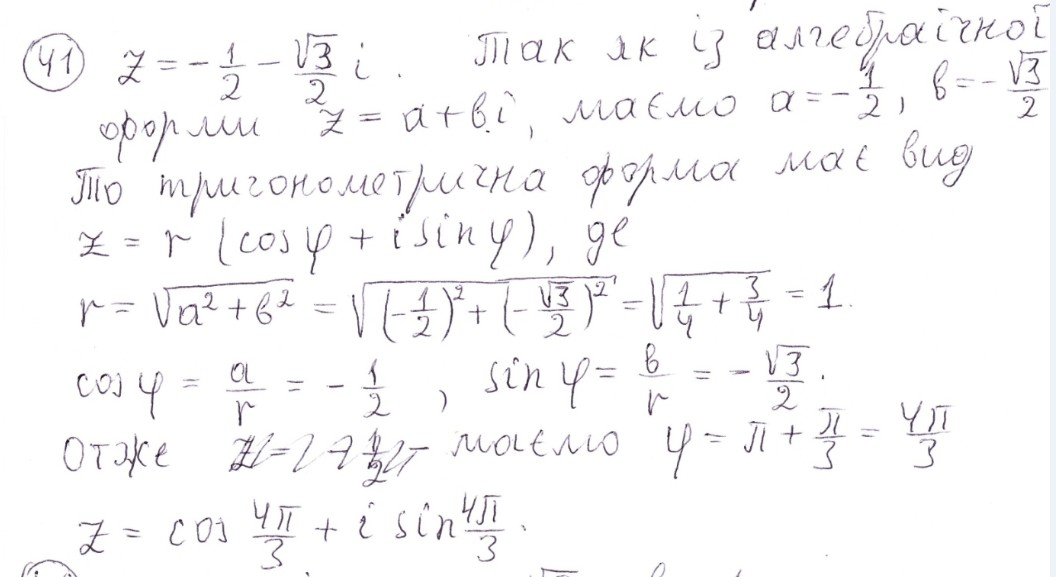 41 z = -1/2 - √3/2 i. Так як із алгебраїчної
форми z = a + bi, маємо a = -1/2, b = -√3/2
То тригонометрична форма має вид
z = r (cos φ + i sin φ), де
r = √(a² + b²) = √((-1/2)² + (-√3/2)²) = √(1/4 + 3/4) = 1.
cos φ = a/r = -1/2, sin φ = b/r = -√3/2.
Отже маємо φ = π + π/3 = 4π/3
z = cos 4π/3 + i sin 4π/3.